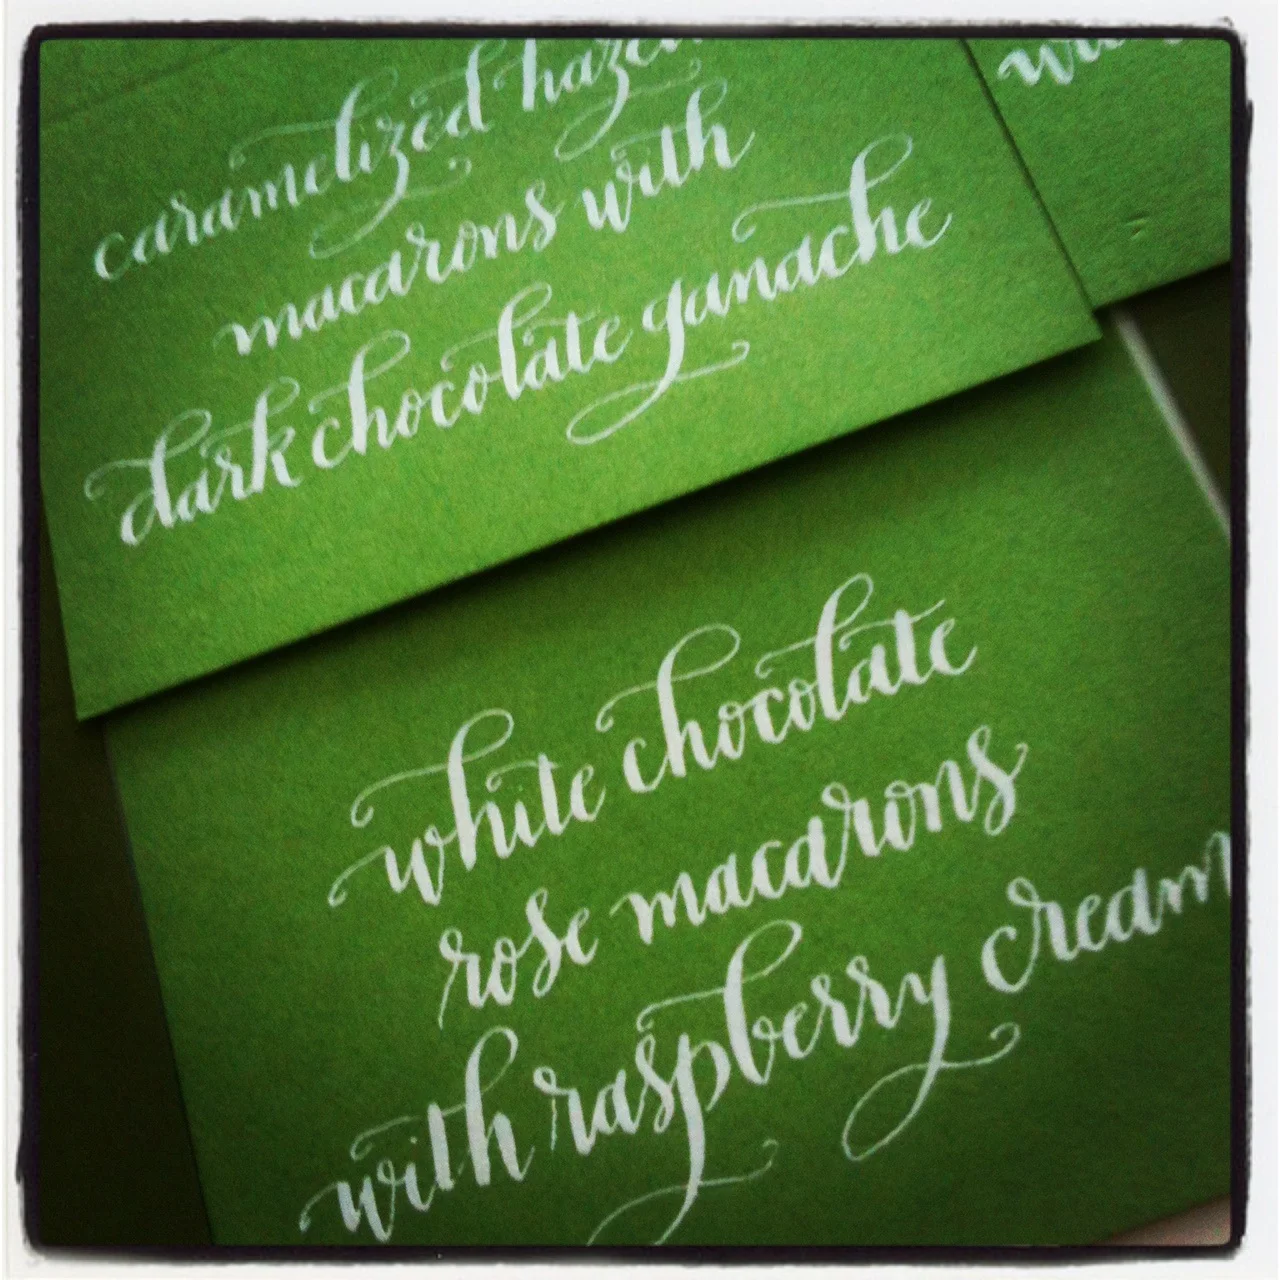 caramelized haze
macarons with
dark chocolate ganache
white chocolate
rose macarons
with raspberry cream